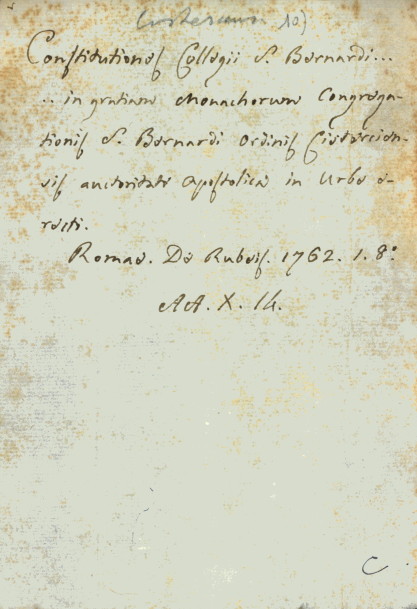 10)
Constitutiones Collegii S. Bernardi...
.. in gratiam Monachorum Congrega-
tionis S. Bernardi Ordinis Cistercien-
sis auctoritate Apostolica in Urbe e-
recti.
Romae. De Rubeis. 1762. 1. 8°
AA. X. 14.
C